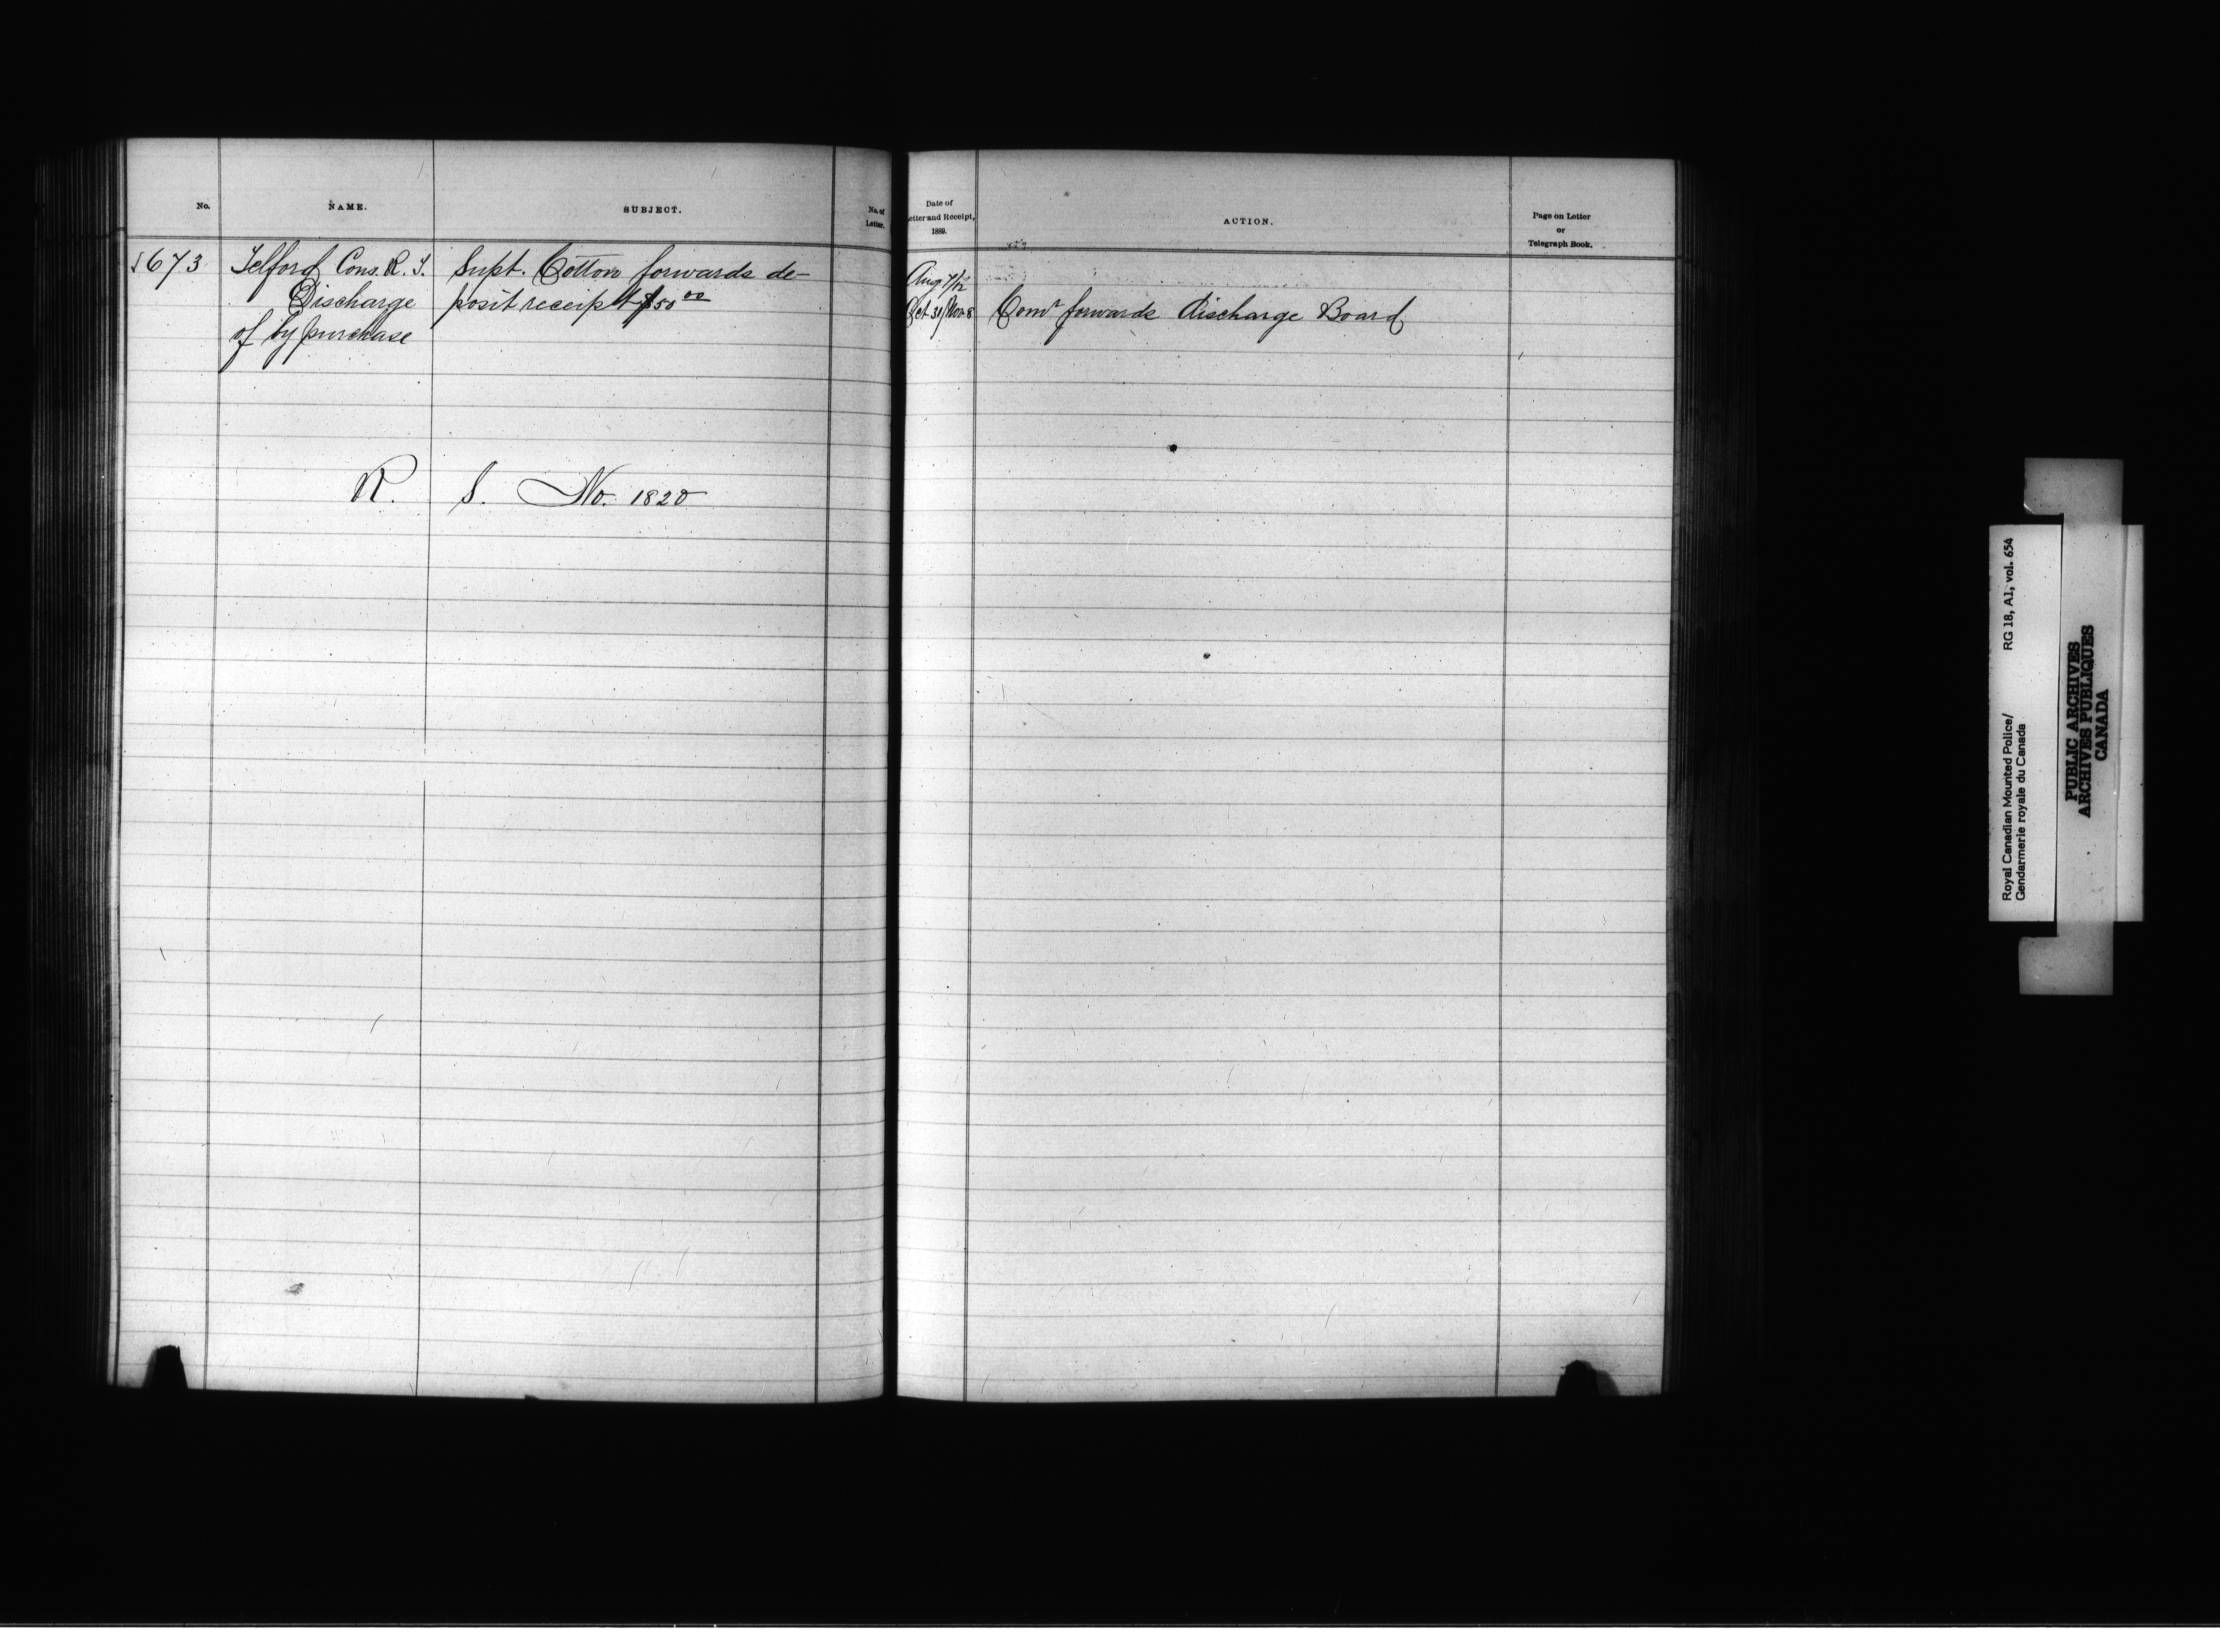 No.
NAME.
SUBJECT.
No. of
Letter.
1673
Telford Cons. R. T.
Discharge
of by purchase
Supt. Cotton forwards de-
posit receipt $50 00
R. S. No. 1820
Date of
Letter and Receipt,
1889.
ACTION.
Page on Letter
or
Telegraph Book.
Aug 7/12
Oct 31/Nov 8 Comr forwards Discharge Board
Royal Canadian Mounted Police/ RG 18, A1, vol. 654
Gendarmerie royale du Canada
PUBLIC ARCHIVES
ARCHIVES PUBLIQUES
CANADA